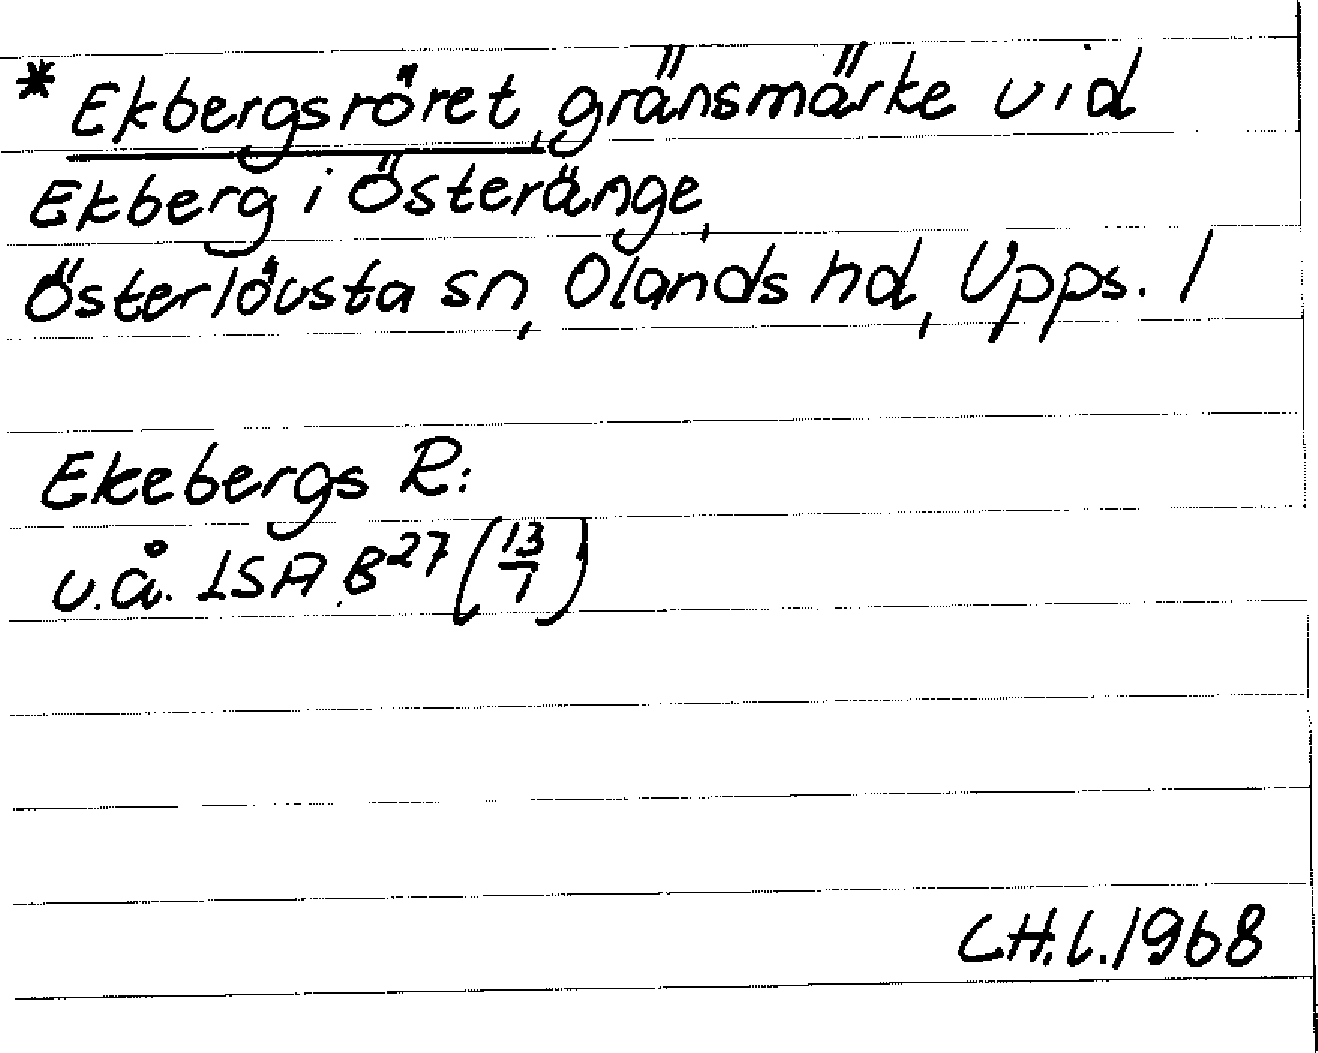 * Ekbergsröret, gränsmärke vid
Ekberg i Österänge,
Österlövsta sn, Olands hd, Upps. l
Ekebergs R:
u.å. LSA B²⁷ (13/1)
C.H.L. 1968